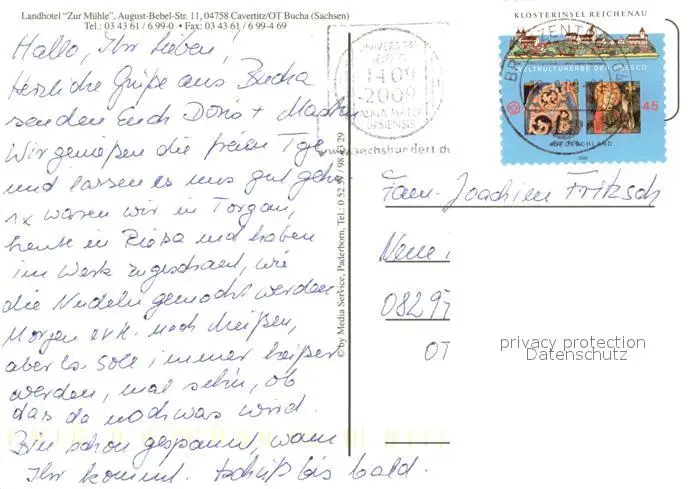 Landhotel "Zur Mühle", August-Bebel-Str. 11, 04758 Cavertitz/OT Bucha (Sachsen)
Tel.: 03 43 61 / 6 99-0 • Fax: 03 43 61 / 6 99-4 69
Hallo, Ihr Lieben!
Herzliche Grüße aus Bucha
senden Euch Doris +
Wir genießen die freien Tage
und lassen es uns gut gehn.
1x waren wir in Torgau,
heute in Riesa und haben
im Werk zugeschaut, wie
die Nudeln gemacht werden
Morgen evtl. noch Meißen,
aber es soll immer heißer
werden, mal sehn, ob
das da noch was wird.
Bin schon gespannt, wann
Ihr kommt. Tschüß bis bald.
© by Media Service, Paderborn, Tel.: 0 52 51 / 98 83 29
UNIVERSITÄT
1409
-2009
ALMA MATER
LIPSIENSIS
www.sechshundert.de
BRIEFZENTRUM
KLOSTERINSEL REICHENAU
WELTKULTURERBE DER UNESCO
45
DEUTSCHLAND
Fam. Joachim Fritzsch
Neue
08297
OT
privacy protection
Datenschutz